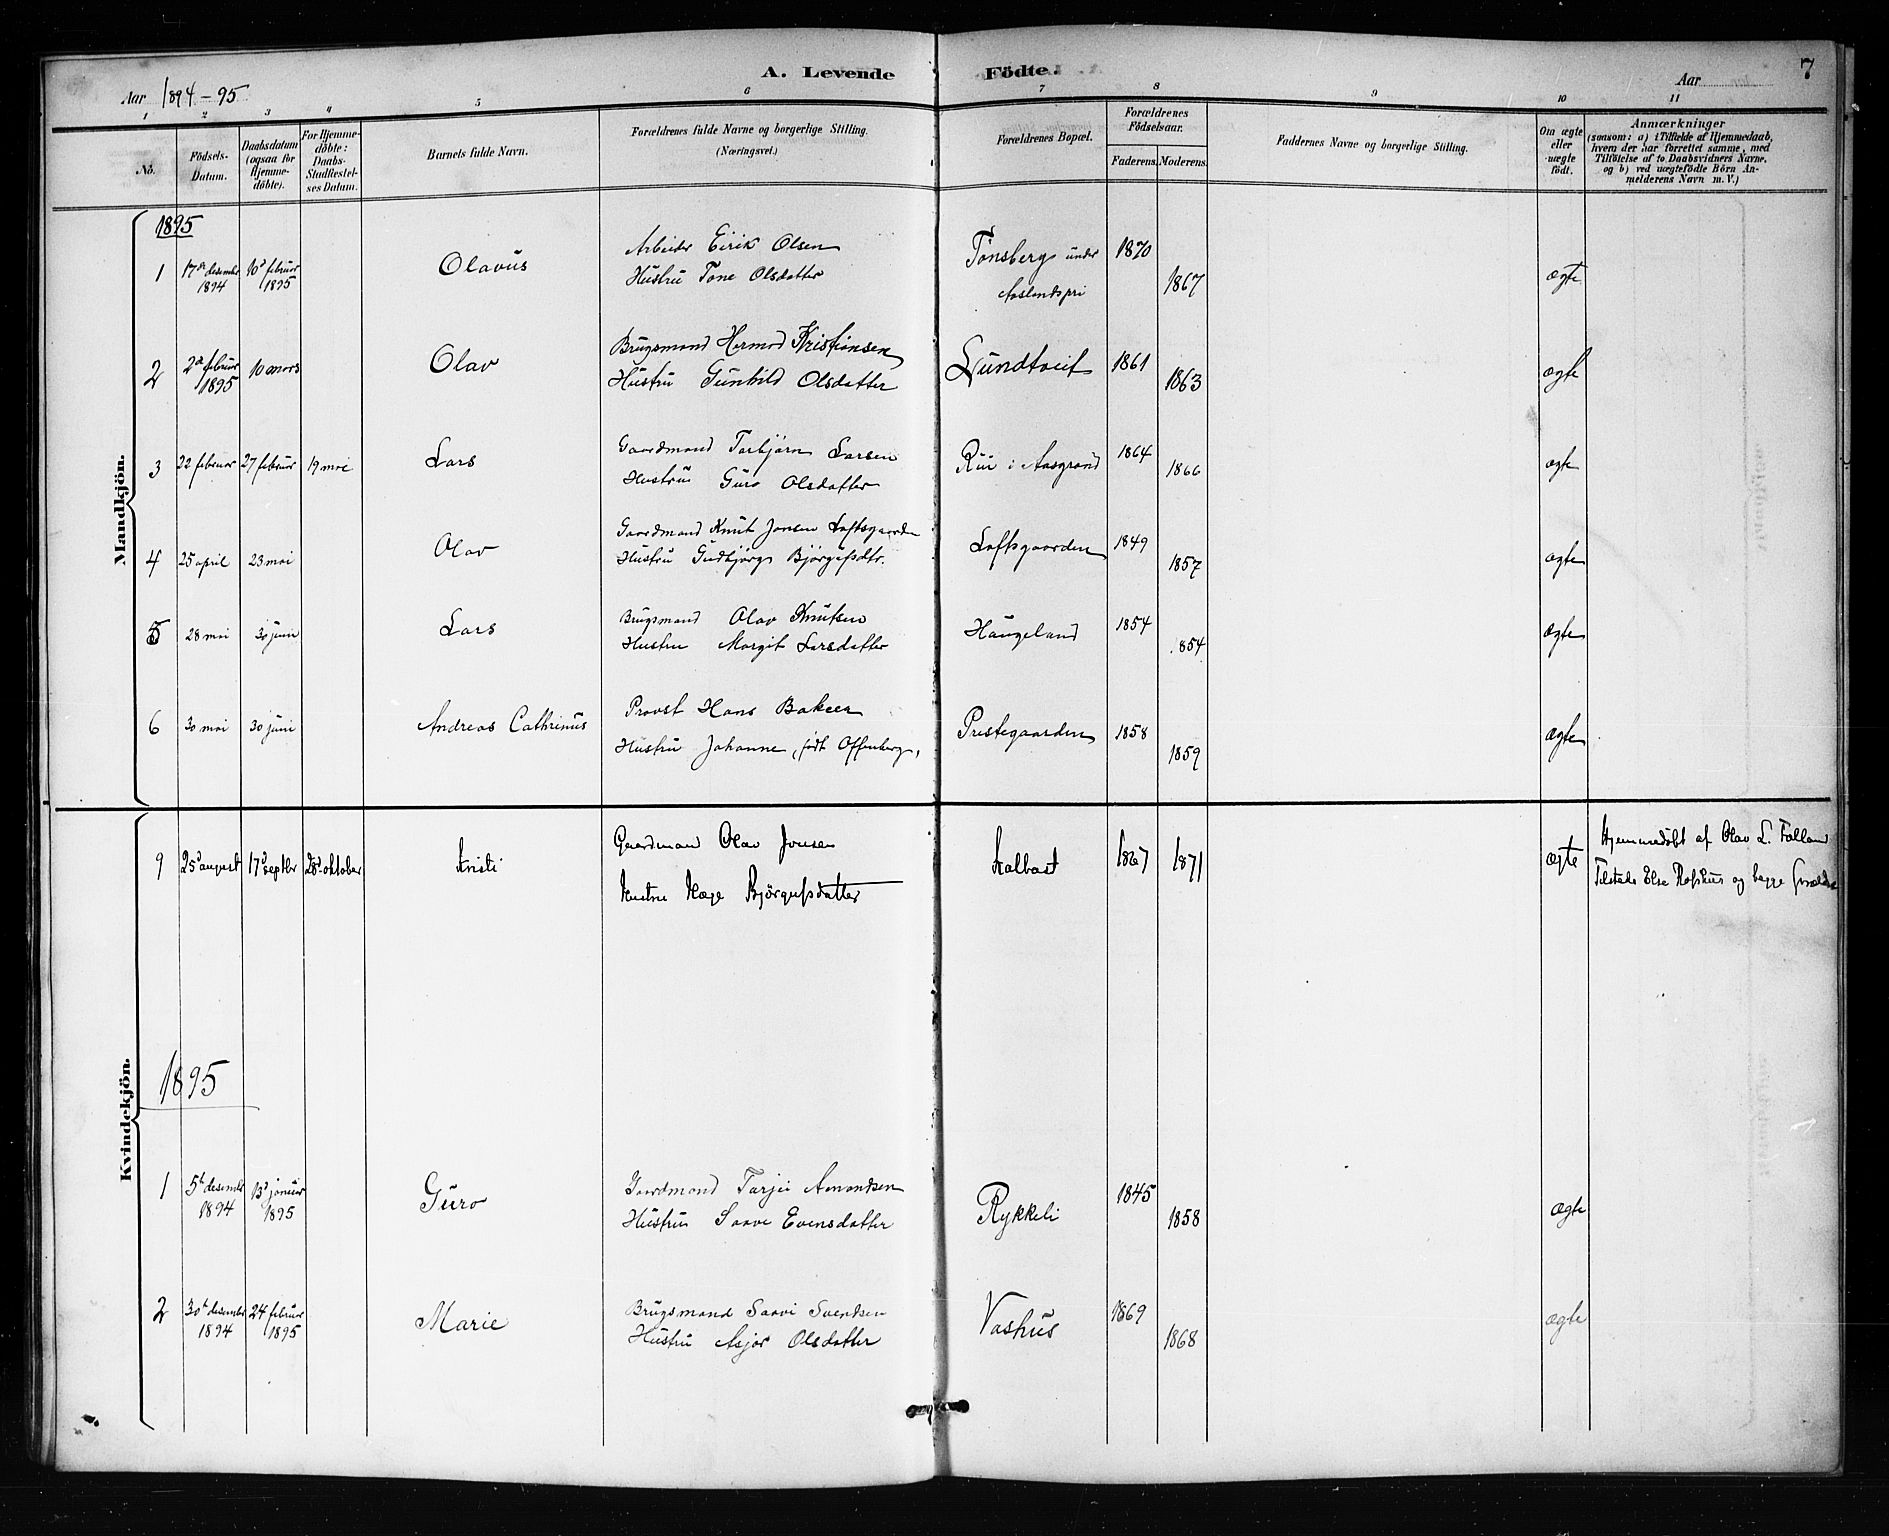 7
A. Levende Födte.
Aar 1894-95
Aar
1 2 3 4 5 6 7 8 9 10 11
No.
Födsels-Datum.
Daabsdatum (ogsaa for Hjemme-döbte).
For Hjemme-döbte: Daabs-Stadfæstel-ses Datum.
Barnets fulde Navn.
Forældrenes fulde Navne og borgerlige Stilling.
(Næringsvei.)
Forældrenes Bopæl.
Forældrenes Födselsaar.
Faderens. Moderens.
Faddernes Navne og borgerlige Stilling.
Om ægte eller uægte födt.
Anmærkninger
(saasom: a) i Tilfælde af Hjemmedaab, hvem der har forrettet samme, med Tilföielse af to Daabsvidners Navne, og b) ved uægtefödte Börn An-melderens Navn m. V.)
Mandkjön.
1895
1 17de desember 1894 10d februar 1895 Olavus Arbeider Eirik Olsen Tønsberg under 1870 ægte
Hustru Tone Olsdatter 1867
2 2d februar 1895 10 mars Olav Brugsmand Hermod Kristiansen Lundtveit 1861 ægte
Hustru Gunhild Olsdatter 1863
3 22 februar 27 februar 19 mai Lars Gaardmand Torbjørn Larsen Rui i Aasgrand 1864 ægte
Hustru Guro Olsdatter 1866
4 25 april 23 mai Olav Gaardmand Knut Jonsen Loftsgaarden Loftsgaarden 1849 ægte
Hustru Gudbjørg Bjørgufsdtr. 1857
5 28 mai 30 juni Lars Brugsmand Olav Knutsen Haugeland 1854 ægte
Hustru Margit Larsdatter 1854
6 30 mai 30 juni Andreas Cathrinus Provst Hans Bakken Prestegaarden 1858 ægte
Hustru Johanne, født Offenberg, 1859
Kvindekjön.
9 25d august 17d septbr 28d oktober Kristi Gaardman Olav Jonsen Kalbast 1867 1871 ægte Hjemmedøbt af Olav L. Falland
Hustru Hæge Bjørgufsdatter Tilstede Else Rofshus og begge forældre
1895
1 5te desember 1894 13d januar 1895 Guro Gaardmand Tarjei Amandsen Rykkeli 1845 ægte
Hustru Saave Evensdatter 1858
2 30te desember 1894 24 februar 1895 Marie Brugsmand Saavi Svendsen Vashus 1869 ægte
Hustru Asjør Olsdatter 1868